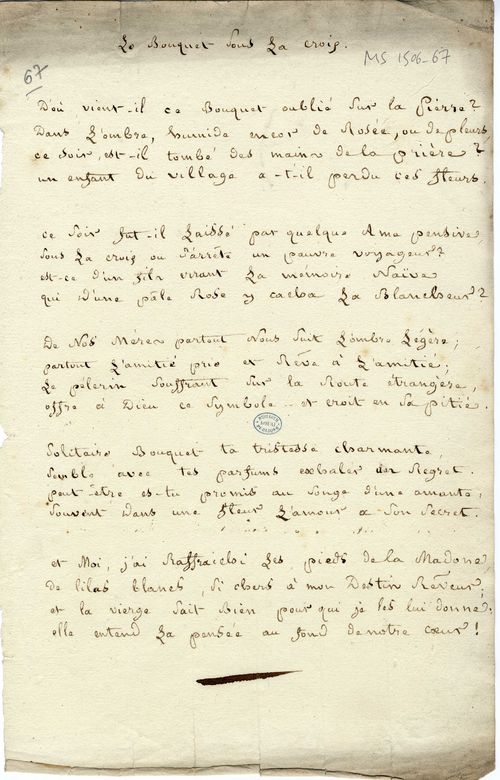 Le Bouquet sous La croix.
MS 1506-67
67
D'où vient-il ce Bouquet oublié sur la pierre ?
Dans L'ombre, humide encor de Rosée, ou de pleurs,
ce soir, est-il tombé des mains de la prière ?
un enfant du village a-t-il perdu ces fleurs.
ce soir fut-il Laissé par quelque Ame pensive,
sous La croix ou s'arrête un pauvre voyageur ?
est-ce d'un fils errant La mémoire Naïve
qui d'une pâle Rose y cacha La Blancheur ?
De Nos Mères partout Nous suit L'ombre Légère ;
partout L'amitié prie et Rêve à L'amitié ;
Le pèlerin souffrant sur la Route étrangère,
offre à Dieu ce symbole et croit en sa pitié.
Solitaire Bouquet ta tristesse charmante,
semble avec tes parfums exhaler un Regret.
peut-être es-tu promis au songe d'une amante,
souvent dans une fleur L'amour a son secret.
et Moi, j'ai Raffraichi Les pieds de la Madone,
de lilas blancs, si chers à mon Destin Rêveur ;
et la vierge sait Bien pour qui je les lui donne,
elle entend La pensée au fond de notre cœur !